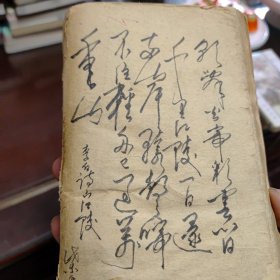 朝辞白帝彩云间
千里江陵一日还
两岸猿声啼
不住轻舟已过万
重山
李白诗下江陵